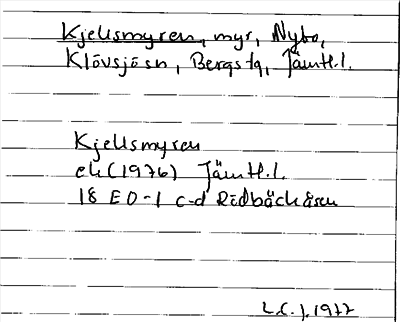 Kjellsmyren, myr, Nybo,
Klövsjö sn, Bergs tg, Jämtl.l.
Kjellsmyren
ek (1976) Jämtl.l.
18 E 0-1 c-d Rödbäckåsen
1977